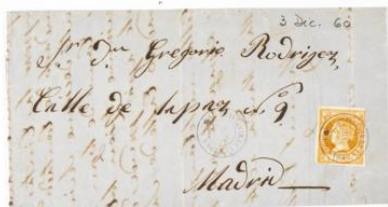 3 Dic. 60
Sr. Dn Gregorio Rodrigez,
Calle de lapaz nº 9
Madrid